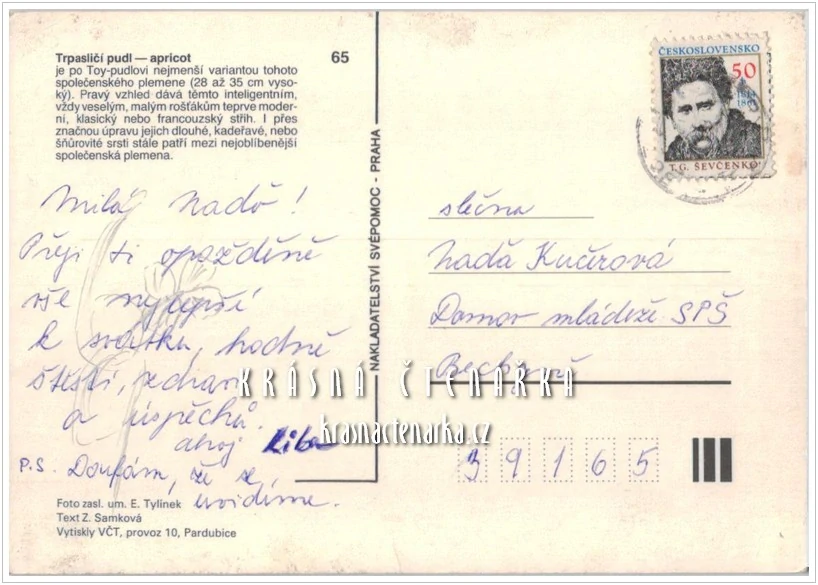 Trpasličí pudl — apricot 65
je po Toy-pudlovi nejmenší variantou tohoto
společenského plemene (28 až 35 cm vyso-
ký). Pravý vzhled dává těmto inteligentním,
vždy veselým, malým rošťákům teprve moder-
ní, klasický nebo francouzský střih. I přes
značnou úpravu jejich dlouhé, kadeřavé, nebo
šňůrovité srsti stále patří mezi nejoblíbenější
společenská plemena.
Milá Naďo!
Přeji ti opožděně
vše nejlepší
k svátku, hodně
štěstí, zdraví
a úspěchů.
ahoj Liba
P.S. Doufám, že se
uvidíme.
Foto zasl. um. E. Tylínek
Text Z. Samková
Vytiskly VČT, provoz 10, Pardubice
NAKLADATELSTVÍ SVÉPOMOC - PRAHA
ČESKOSLOVENSKO
50
1814
1861
T.G. ŠEVČENKO
slečna
Naďa Kučerová
Domov mládeže SPŠ
Bechyně
39165
KRÁSNÁ ČTENÁŘKA
krasnactenarka.cz